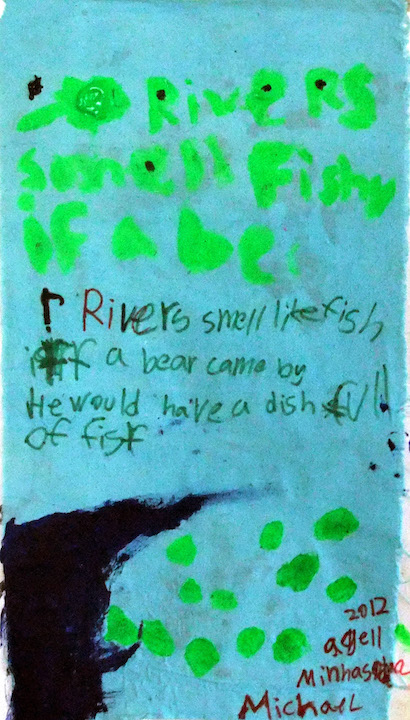 Rivers
smell Fishy
if a be
Rivers smell like fish
iff a bear came by
He would have a dish full
of fish
2012
Michael